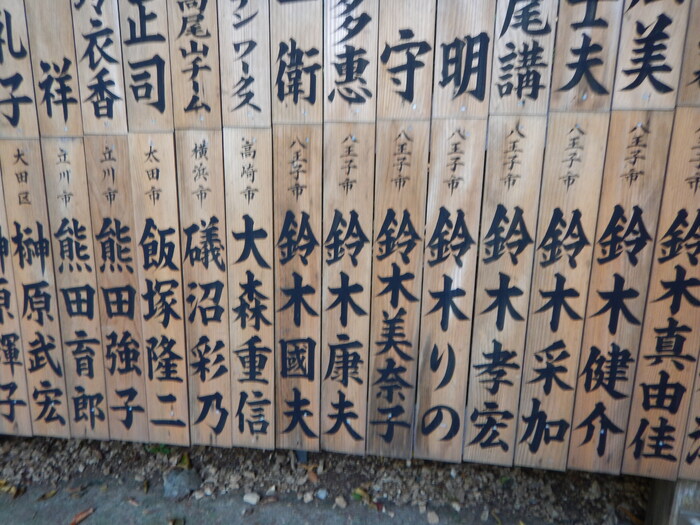 美
士夫
尾講
明
守
多恵
衛
ン ワークス
高尾山チーム
正司
衣香
祥
礼子
鈴木真由佳
八王子市 鈴木健介
八王子市 鈴木采加
八王子市 鈴木孝宏
八王子市 鈴木りの
八王子市 鈴木美奈子
八王子市 鈴木康夫
八王子市 鈴木國夫
高崎市 大森重信
横浜市 礒沼彩乃
太田市 飯塚隆二
立川市 熊田強子
立川市 熊田育郎
大田区 榊原武宏
榊原輝子